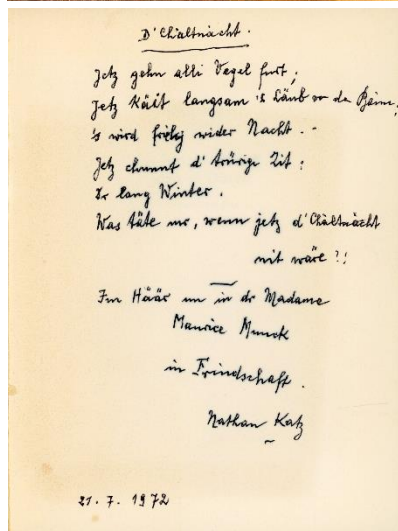 D'Chàltnàcht.
Jetz gehn alli Vegel furt;
Jetz kàit langsam 's Làub vo da Baim;
's wird frihj wider Nacht.
Jetz chunnt d' trürige Zit:
Dr lang Winter.
Was tàte mr, wenn jetz d'Chàltnàcht
nit wàre?!
Im Hààr un in dr Madame
Maurice Munck
in Frindschaft.
Nathan Katz
21. 7. 1972